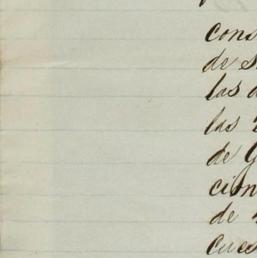 cons
de s
las
las
de G
cion
de
cues